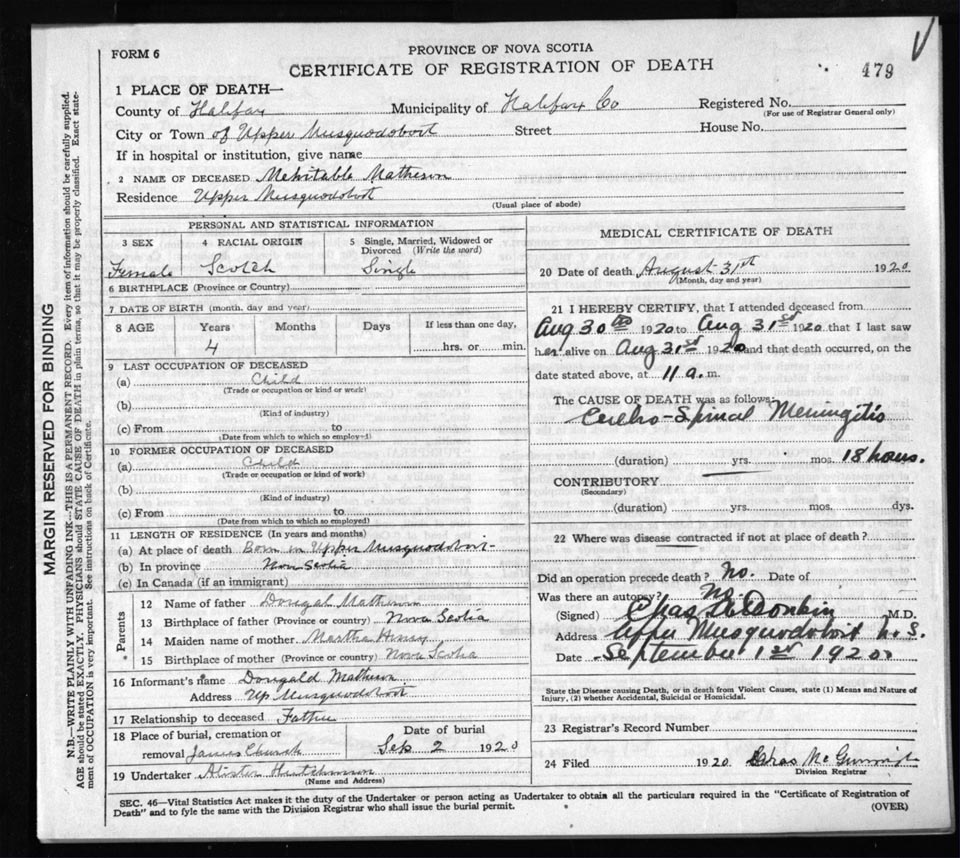 FORM 6
PROVINCE OF NOVA SCOTIA
CERTIFICATE OF REGISTRATION OF DEATH
479
1 PLACE OF DEATH—
County of Halifax Municipality of Halifax Co Registered No.
(For use of Registrar General only)
City or Town of Upper Musquodoboit Street House No.
If in hospital or institution, give name
2 NAME OF DECEASED Mehitable Matheson
Residence Upper Musquodoboit
(Usual place of abode)
PERSONAL AND STATISTICAL INFORMATION
3 SEX 4 RACIAL ORIGIN 5 Single, Married, Widowed or Divorced (Write the word)
Female Scotch Single
6 BIRTHPLACE (Province or Country)
7 DATE OF BIRTH (month, day and year)
8 AGE Years Months Days If less than one day,
4 hrs. or min.
9 LAST OCCUPATION OF DECEASED
(a) Child
(Trade or occupation or kind or work)
(b)
(Kind of industry)
(c) From to
(Date from which to which so employed)
10 FORMER OCCUPATION OF DECEASED
(a) Child
(Trade or occupation or kind of work)
(b)
(Kind of industry)
(c) From to
(Date from which to which so employed)
11 LENGTH OF RESIDENCE (In years and months)
(a) At place of death Born in Upper Musquodoboit
(b) In province Nova Scotia
(c) In Canada (if an immigrant)
Parents
12 Name of father Dougal Matheson
13 Birthplace of father (Province or country) Nova Scotia
14 Maiden name of mother Martha
15 Birthplace of mother (Province or country) Nova Scotia
16 Informant's name Dougald Matheson
Address Up Musquodoboit
17 Relationship to deceased Father
18 Place of burial, cremation or Date of burial
removal James Church Sep 2 1920
19 Undertaker Hutchinson
(Name and Address)
MEDICAL CERTIFICATE OF DEATH
20 Date of death August 31st 1920
(Month, day and year)
21 I HEREBY CERTIFY, that I attended deceased from
Aug 30th 1920 to Aug 31st 1920 that I last saw
her alive on Aug 31st 1920 and that death occurred, on the
date stated above, at 11 a. m.
The CAUSE OF DEATH was as follows:
Cerebro-Spinal Meningitis
(duration) yrs. mos. 18 hours.
CONTRIBUTORY
(Secondary)
(duration) yrs. mos. dys.
22 Where was disease contracted if not at place of death?
Did an operation precede death? No. Date of
Was there an autopsy? No
(Signed) Chas M.D.
Address Upper Musquodoboit N.S.
Date September 1st 1920
State the Disease causing Death, or in death from Violent Causes, state (1) Means and Nature of
Injury, (2) whether Accidental, Suicidal or Homicidal.
23 Registrar's Record Number
24 Filed 1920 Chas
Division Registrar
SEC. 46—Vital Statistics Act makes it the duty of the Undertaker or person acting as Undertaker to obtain all the particulars required in the "Certificate of Registration of
Death" and to fyle the same with the Division Registrar who shall issue the burial permit.
(OVER)
MARGIN RESERVED FOR BINDING
N.B.—WRITE PLAINLY WITH UNFADING INK—THIS IS A PERMANENT RECORD. Every item of information should be carefully supplied.
AGE should be stated EXACTLY. PHYSICIANS should STATE CAUSE OF DEATH in plain terms, so that it may be properly classified. Exact state-
ment of OCCUPATION is very important. See instructions on back of Certificate.